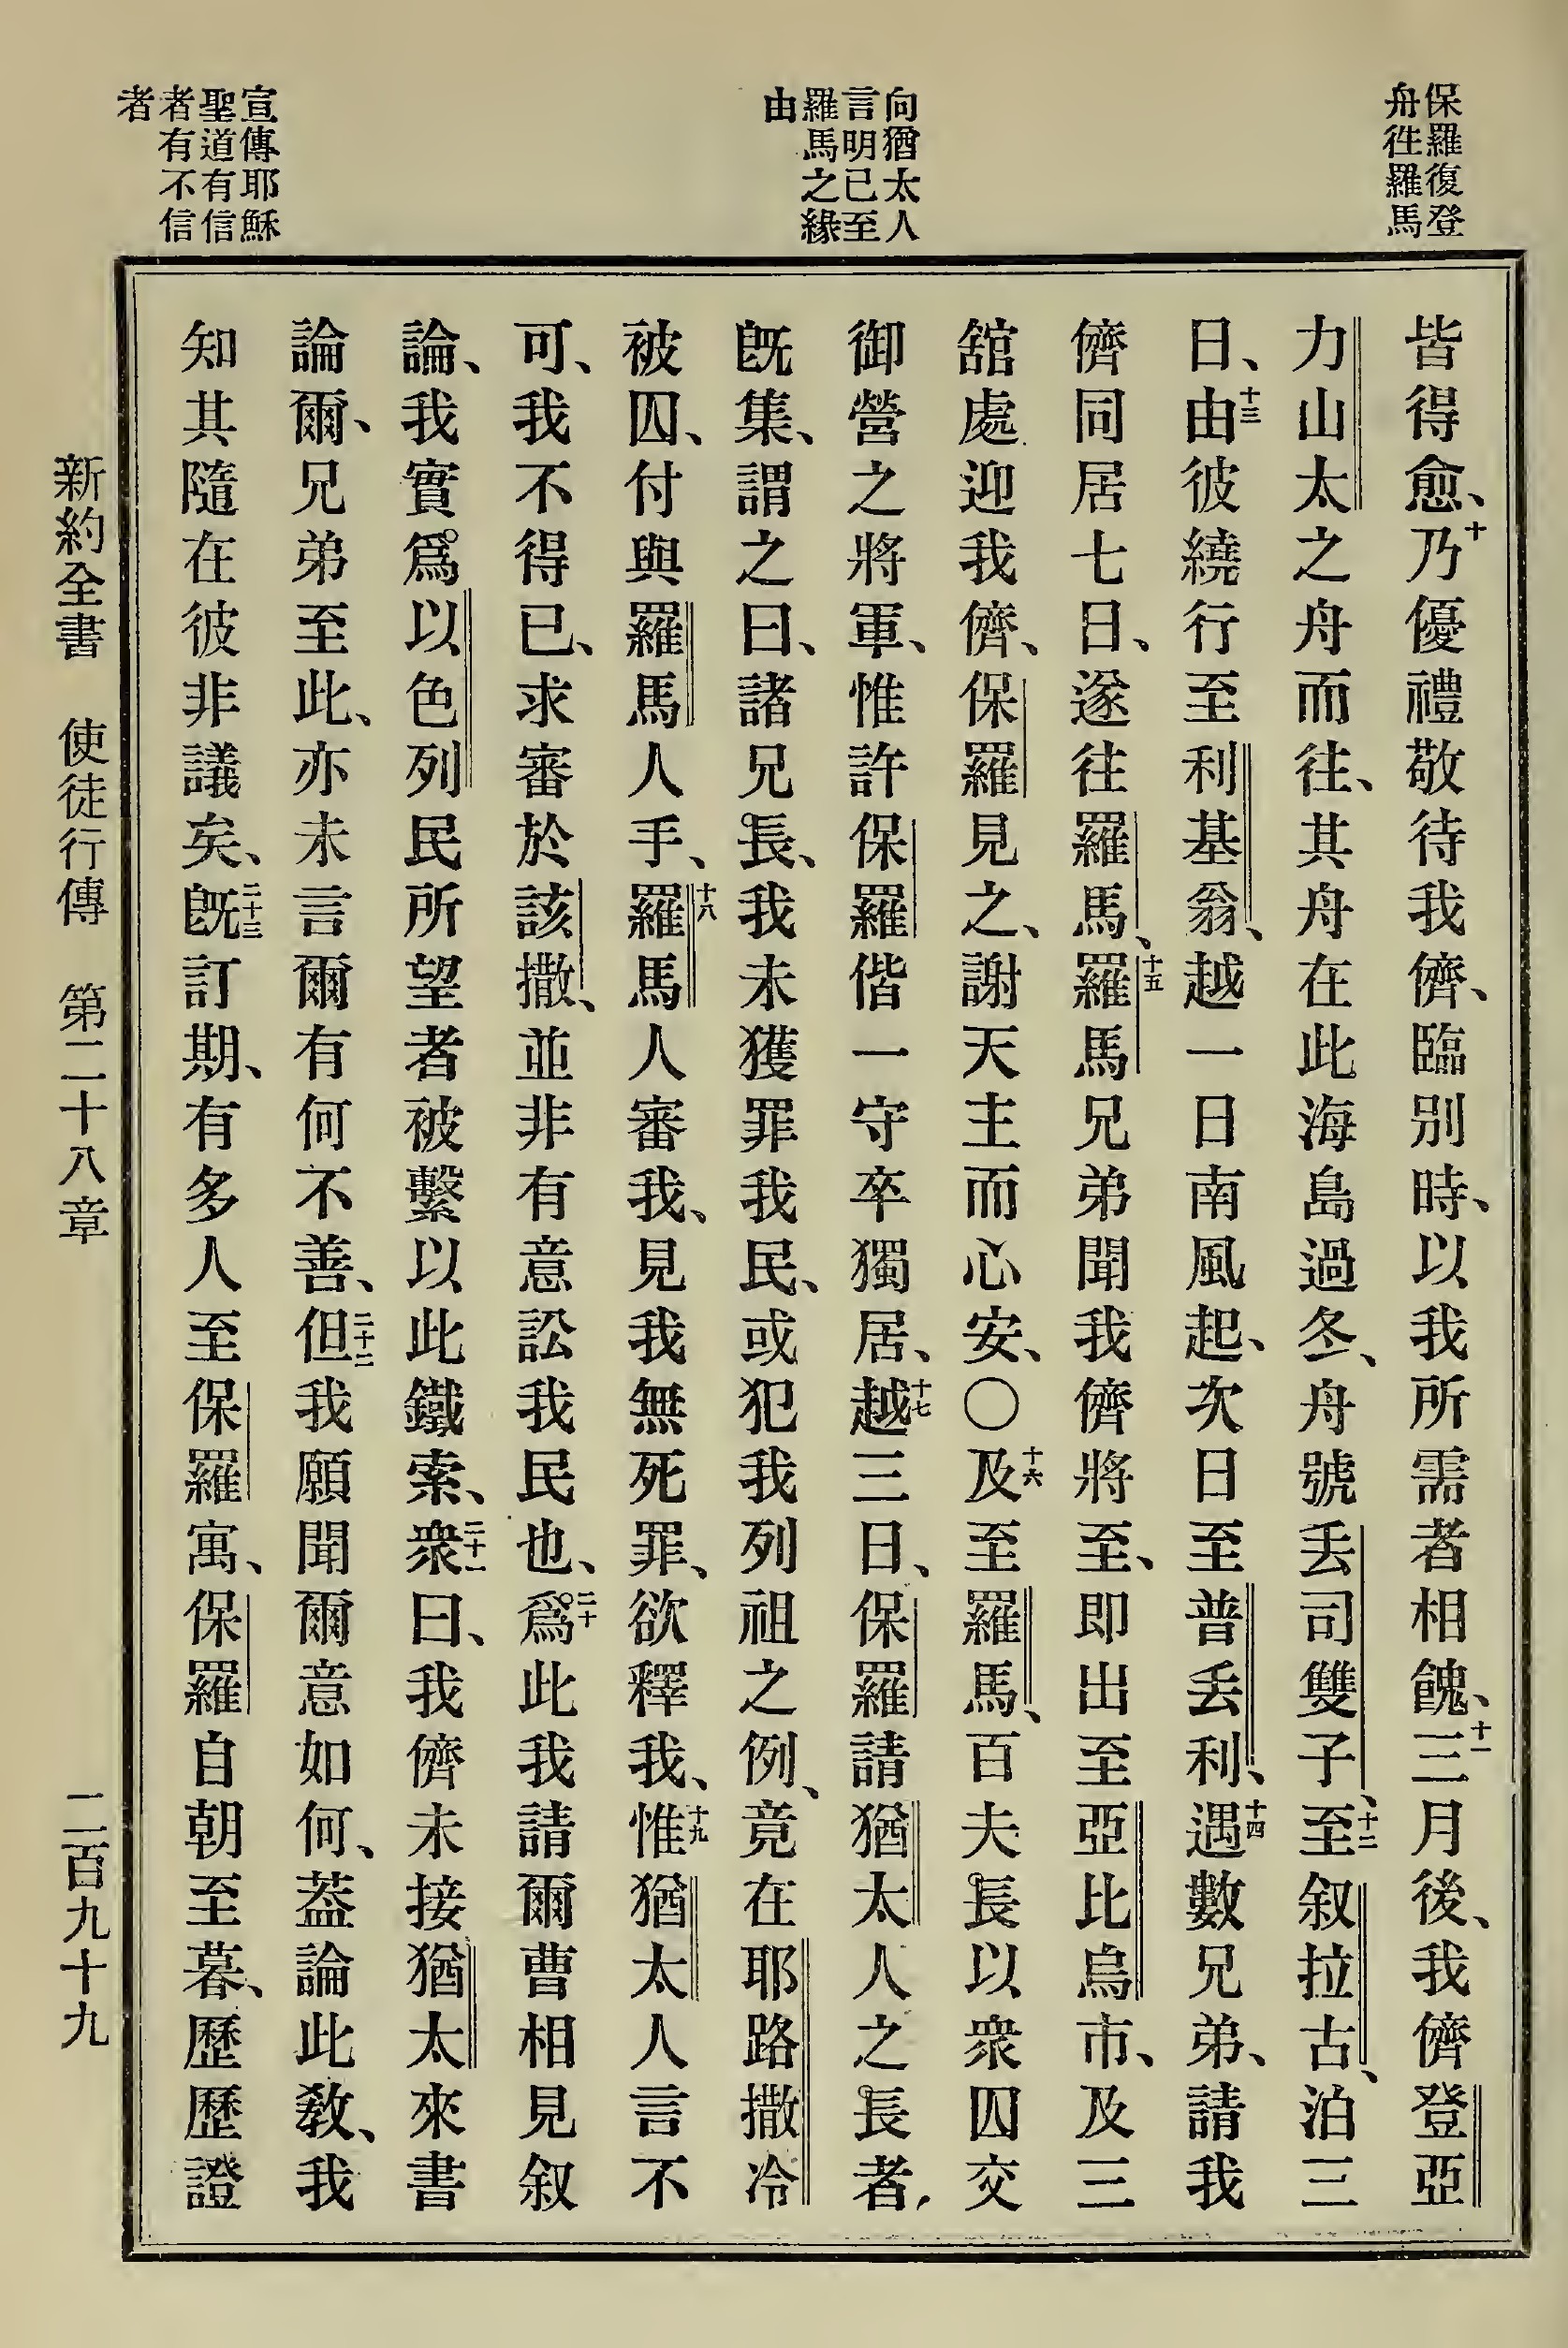 保羅復登
舟徃羅馬
向猶太人
言明已至
羅馬之緣
由
宣傳耶穌
聖道有信
者有不信
者
皆得愈、十乃優禮敬待我儕、臨別時、以我所需者相餽、十一三月後、我儕登亞
力山太之舟而往、其舟在此海島過冬、舟號丟司雙子、十二至叙拉古、泊三
日、十三由彼繞行至利基翁、越一日南風起、次日至普丟利、十四遇數兄弟、請我
儕同居七日、遂往羅馬、十五羅馬兄弟聞我儕將至、即出至亞比烏市、及三
舘處迎我儕、保羅見之、謝天主而心安、〇十六及至羅馬、百夫長以衆囚交
御營之將軍、惟許保羅偕一守卒獨居、十七越三日、保羅請猶太人之長者、
旣集、謂之曰、諸兄長、我未獲罪我民、或犯我列祖之例、竟在耶路撒冷
被囚、付與羅馬人手、十八羅馬人審我、見我無死罪、欲釋我、十九惟猶太人言不
可、我不得已、求審於該撒、並非有意訟我民也、二十爲此我請爾曹相見叙
論、我實爲以色列民所望者被繫以此鐵索、二十一衆曰、我儕未接猶太來書
論爾、兄弟至此、亦未言爾有何不善、二十二但我願聞爾意如何、葢論此敎、我
知其隨在彼非議矣、二十三旣訂期、有多人至保羅寓、保羅自朝至暮、歷歷證
新約全書 使徒行傳 第二十八章 二百九十九